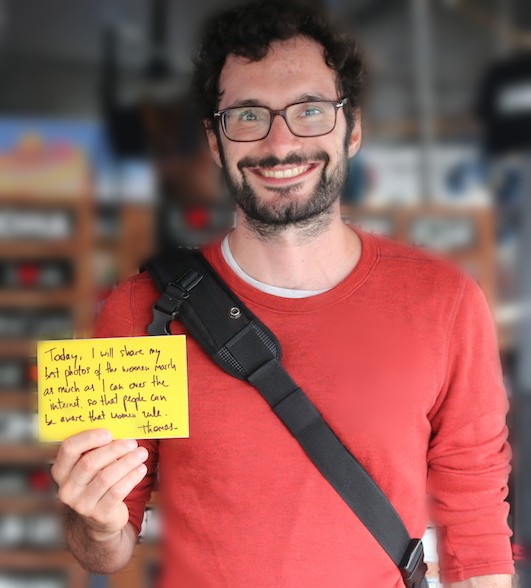 Today, I will share my
best photos of the women march
as much as I can over the
internet. so that people can
be aware that women rule.
Thomas-